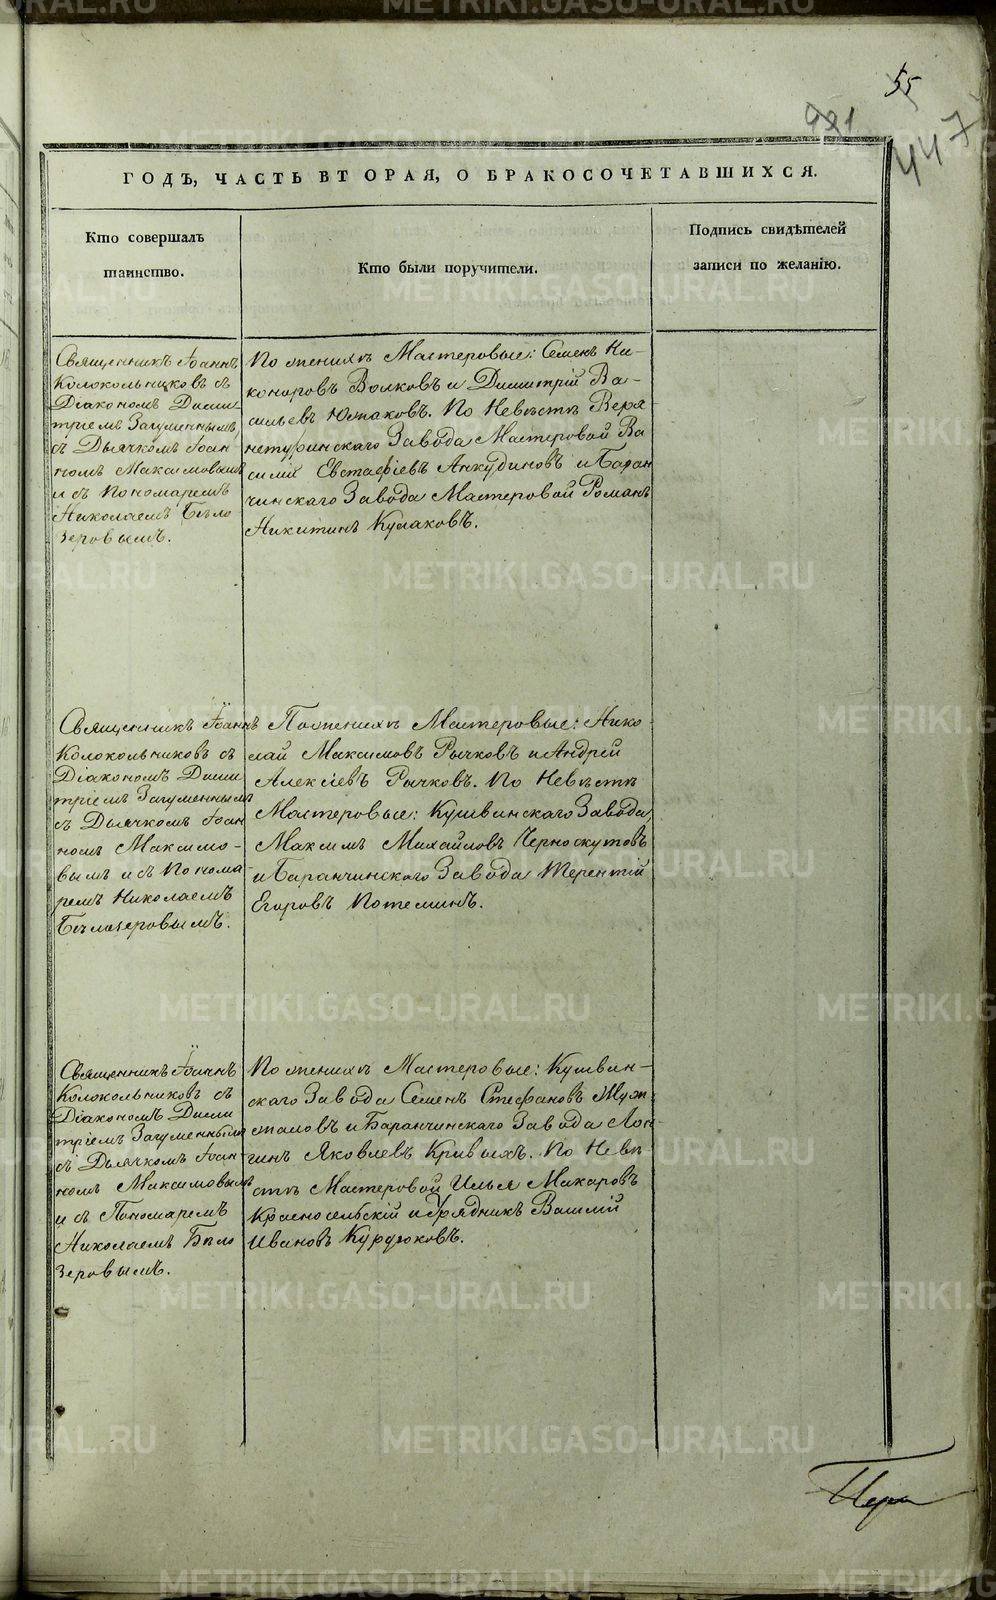 55
981
447
ГОДЪ, ЧАСТЬ ВТОРАЯ, О БРАКОСОЧЕТАВШИХСЯ.
Кто совершалъ
таинство.
Кто были поручители.
Подпись свидѣтелей
записи по желанію.
Священникъ Іоаннъ
Колокольниковъ съ
Діакономъ Дими
тріемъ Загуменнымъ,
съ Дьячкомъ Іоан
номъ Максимовымъ
и съ Пономаремъ
Николаемъ Бѣло
зеровымъ.
По женихѣ Мастеровые: Семенъ Ни-
коноровъ Волковъ и Димитрій Ва-
сильевъ Юшаковъ. По Невѣстѣ Верх
нетуринскаго Завода Мастеровой Ва
силій Евстафіевъ Анкудиновъ и Баран
чинскаго Завода Мастеровой Романъ
Никитинъ Кулаковъ.
Священникъ Іоаннъ
Колокольниковъ съ
Діакономъ Дими
тріемъ Загуменнымъ
съ Дьячкомъ Іоан
номъ Максимо-
вымъ и съ Понома
ремъ Николаемъ
Бѣлозеровымъ.
По женихѣ Мастеровые: Нико-
лай Максимовъ Рычковъ и Андрей
Алексіевъ Рычковъ. По Невѣстѣ
Мастеровые: Кушвинскаго Завода
Максимъ Михайловъ Черноскутовъ
и Баранчинскаго Завода Терентій
Егоровъ Потеминъ.
Священникъ Іоаннъ
Колокольниковъ съ
Діакономъ Дими
тріемъ Загуменнымъ
съ Дьячкомъ Іоан-
номъ Максимовымъ
и съ Пономаремъ
Николаемъ Бѣло
зеровымъ.
По женихѣ Мастеровые: Кушвин-
скаго Завода Семенъ Стефановъ
и Баранчинскаго Завода Лон-
гинъ Яковлевъ Кривыхъ. По Невѣ-
стѣ Мастеровой Илья Макаровъ
Красносельскій и Урядникъ Василій
Ивановъ Курдюковъ.
METRIKI.GASO-URAL.RU